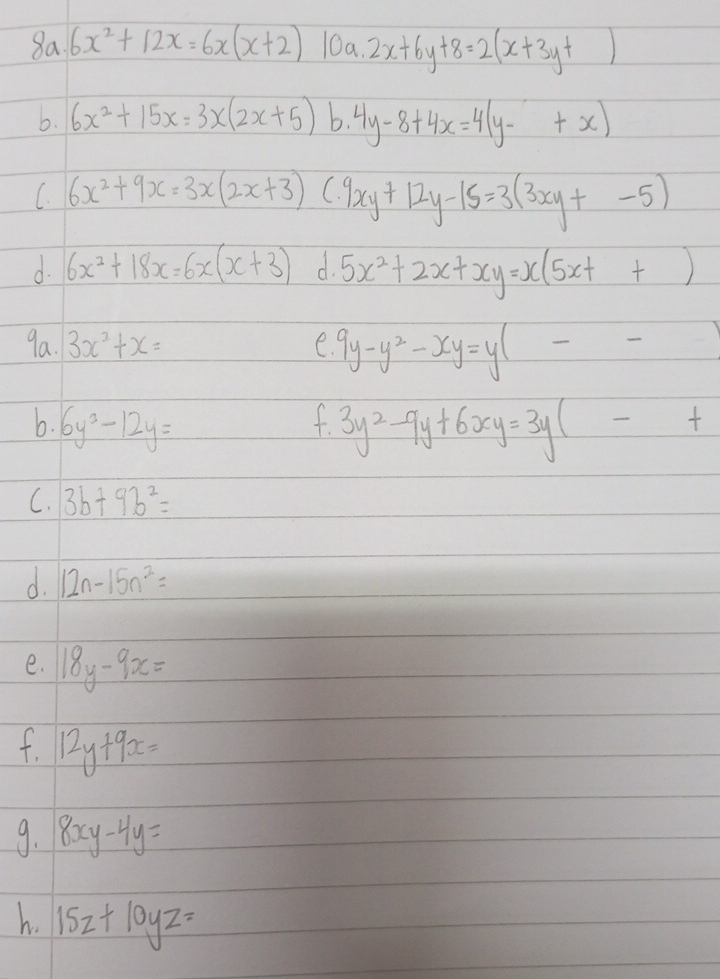 8a. 6x² + 12x = 6x(x+2) 10a. 2x+6y+8=2(x+3y+ )
b. 6x² + 15x = 3x(2x+5) b. 4y-8+4x=4(y- + x)
c. 6x² + 9x = 3x(2x+3) c. 9xy + 12y-15=3(3xy+ -5)
d. 6x² + 18x = 6x(x+3) d. 5x² + 2x + xy = x(5x+ + )
9a. 3x² + x = e. 9y-y² - xy = y( - - )
b. 6y³ - 12y = f. 3y² - 9y + 6xy = 3y( - +
c. 3b + 9b² =
d. 12n-15n² =
e. 18y-9x=
f. 12y+9x=
g. 8xy-4y=
h. 15z + 10yz=